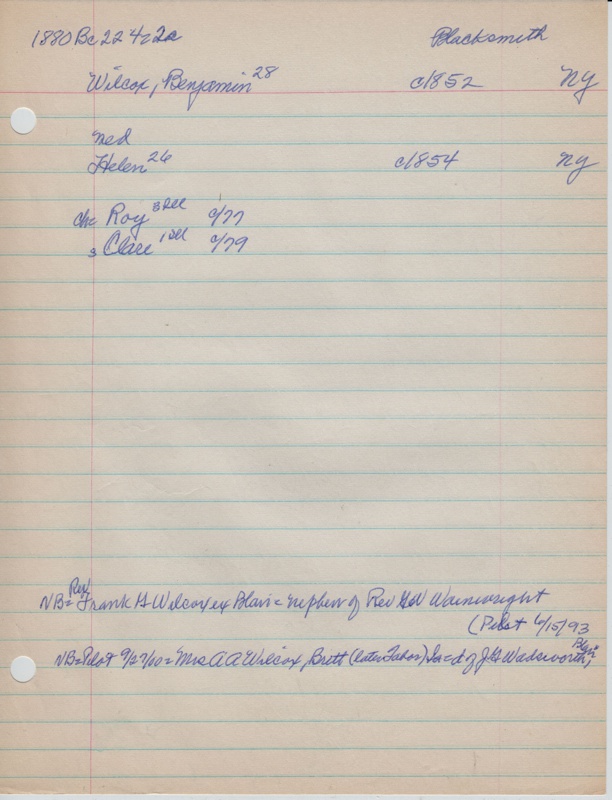 1880 Bc 224: 2a Blacksmith
Wilcox, Benjamin 28 c/1852 NY
med
Helen 26 c/1854 NY
ch= Roy 3 Ill c/77
3 Clare 1 Ill c/79
NB= Rev Frank G Wilcox ex Blair = nephew of Rev GW Wainwright
(Pilot 6/15/93
NB=Pilot 9/27/00= Mrs A A Wilcox, Britt (later Tabor) Ia = d of J G Wadsworth, Blair